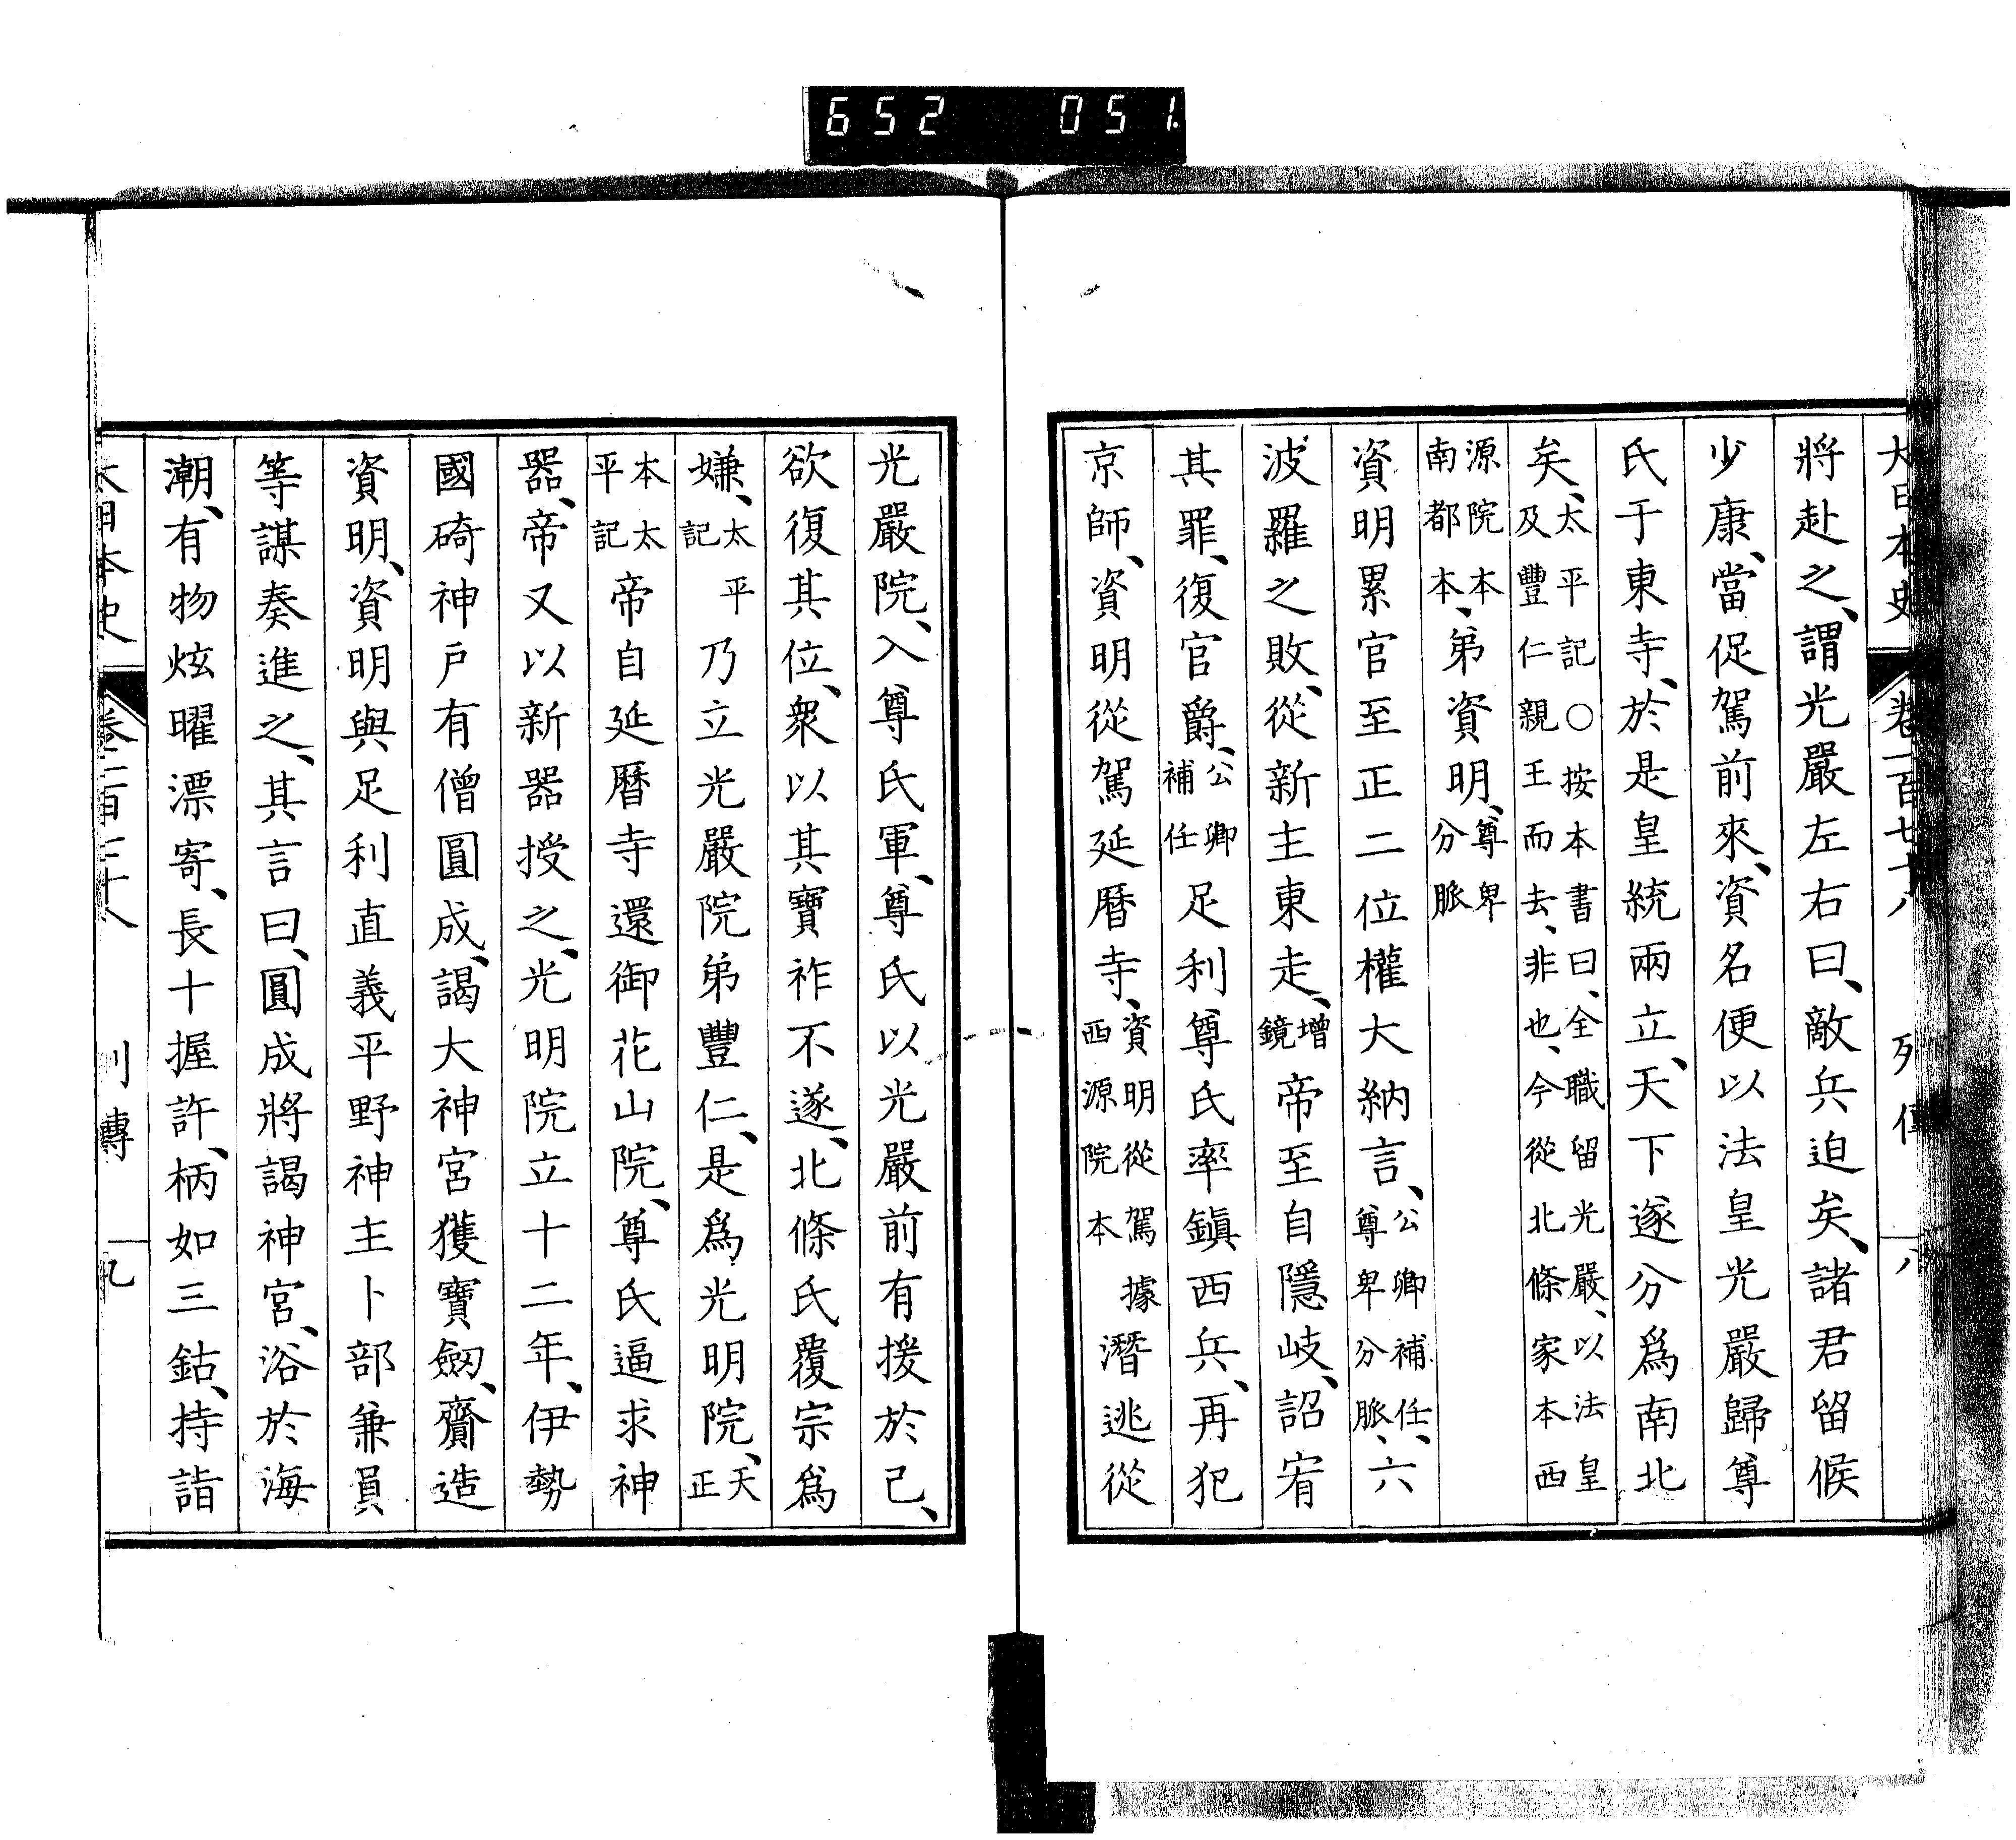 652 051
大日本史 卷一百七十八 列傳 八
將赴之、謂光嚴左右曰、敵兵迫矣、諸君留候
少康、當促駕前來、資名便以法皇光嚴歸尊
氏于東寺、於是皇統兩立、天下遂分爲南北
矣、太平記○按本書曰、全職留光嚴、以法皇
及豐仁親王而去、非也、今從北條家本西
源院本
南都本、弟資明、尊卑
分脈
資明累官至正二位權大納言、公卿補任、
尊卑分脈、六
波羅之敗、從新主東走、增
鏡帝至自隱岐、詔宥
其罪、復官爵、公卿
補任足利尊氏率鎭西兵、再犯
京師、資明從駕延曆寺、資明從駕據
西源院本潛逃從
光嚴院、入尊氏軍、尊氏以光嚴前有援於己、
欲復其位、衆以其寶祚不遂、北條氏覆宗爲
嫌、太平
記乃立光嚴院弟豐仁、是爲光明院、天
正
本太
平記帝自延曆寺還御花山院、尊氏逼求神
器、帝又以新器授之、光明院立十二年、伊勢
國碕神戶有僧圓成、謁大神宮獲寶劔、齎造
資明、資明與足利直義平野神主卜部兼員
等謀奏進之、其言曰、圓成將謁神宮、浴於海
潮、有物炫曜漂寄、長十握許、柄如三鈷、持詣
大日本史 列傳 九